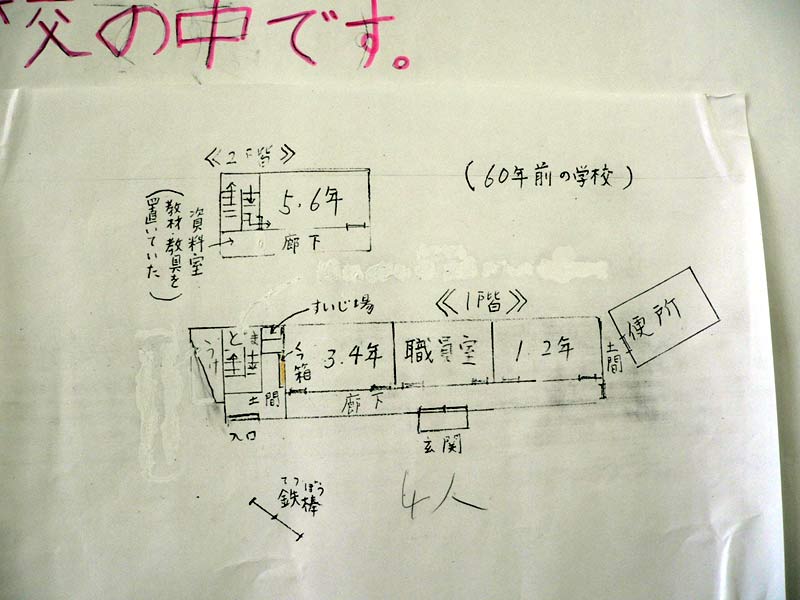 校の中です。
《2階》
(60年前の学校)
5.6年
廊下
資料室
(教材・教具を
置いていた)
《1階》
すいじ場
便所
3.4年
職員室
1.2年
土間
土間
廊下
入口
玄関
てつぼう
鉄棒
4人